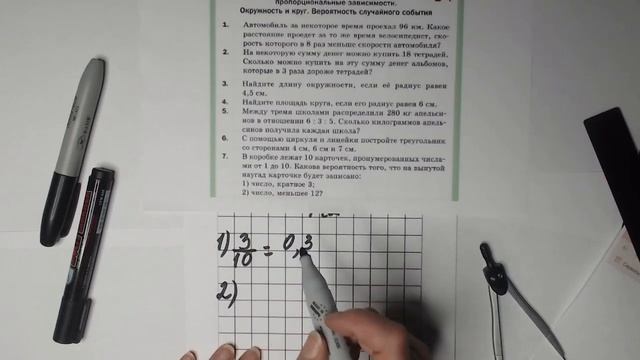 пропорциональные зависимости.
Окружность и круг. Вероятность случайного события
1. Автомобиль за некоторое время проехал 96 км. Какое
расстояние проедет за то же время велосипедист, ско-
рость которого в 8 раз меньше скорости автомобиля?
2. На некоторую сумму денег можно купить 18 тетрадей.
Сколько можно купить на эту сумму денег альбомов,
которые в 3 раза дороже тетрадей?
3. Найдите длину окружности, если её радиус равен
4,5 см.
4. Найдите площадь круга, если его радиус равен 6 см.
5. Между тремя школами распределили 280 кг апельси-
нов в отношении 6 : 3 : 5. Сколько килограммов апель-
синов получила каждая школа?
6. С помощью циркуля и линейки постройте треугольник
со сторонами 4 см, 6 см и 7 см.
7. В коробке лежат 10 карточек, пронумерованных числа-
ми от 1 до 10. Какова вероятность того, что на вынутой
наугад карточке будет записано:
1) число, кратное 3;
2) число, меньшее 12?
1) 3/10 = 0,3
2)